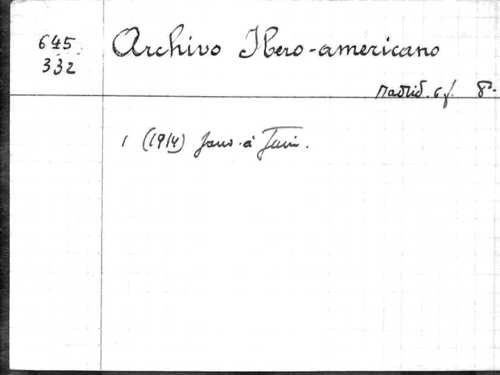 645
332
Archivo Ibero-americano
Madrid. 6 f. 8º.
1 (1914) Janv. à Juin.